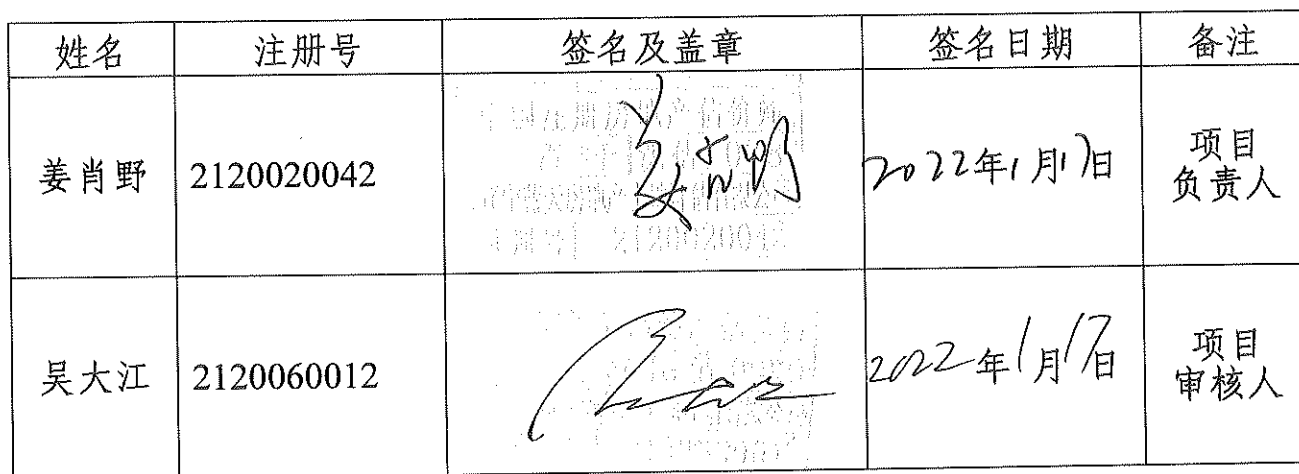 姓名 注册号 签名及盖章 签名日期 备注
姜肖野 2120020042 2022年1月17日 项目
负责人
吴大江 2120060012 吴大江 2022年1月17日 项目
审核人